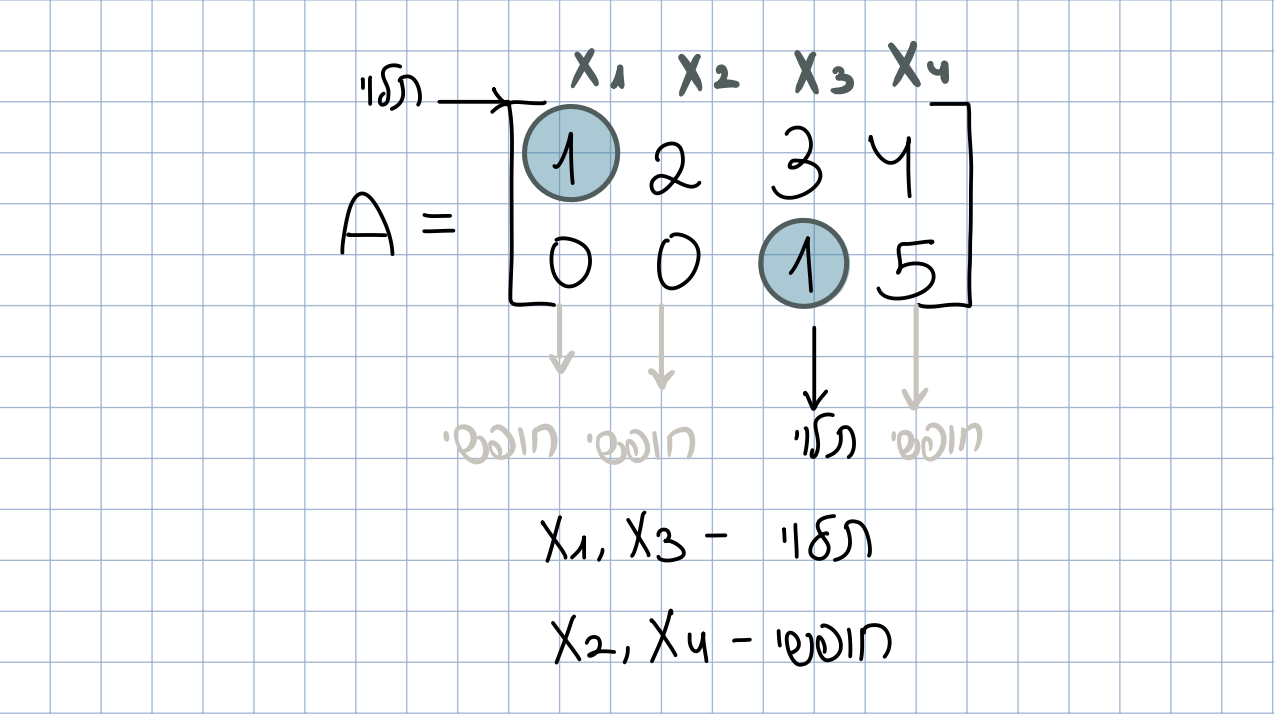 X1 X2 X3 X4
תלוי
1 2 3 4
A =
0 0 1 5
חופשי חופשי תלוי חופשי
X1, X3 - תלוי
X2, X4 - חופשי